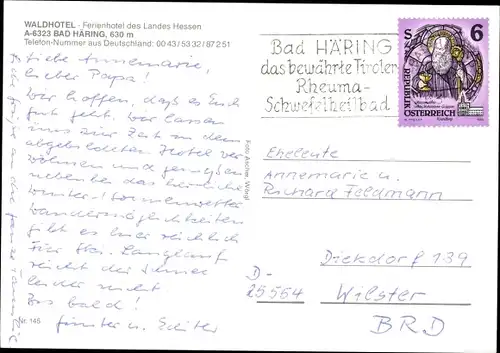 WALDHOTEL - Ferienhotel des Landes Hessen
A-6323 BAD HÄRING, 630 m
Telefon-Nummer aus Deutschland: 00 43 / 53 32 / 87 2 51
Liebe Annemarie,
lieber Papa!
Wir hoffen, daß es Euch
gut geht. Wir lassen
uns zur Zeit in dem
abgebildeten Hotel ver-
wöhnen und genießen
nebenbei das herrliche
Winter-Sonnenwetter.
Wandermöglichkeiten
gibt es hier reichlich
Für Ski-Langlauf
reicht der Schnee
leider nicht
Bis bald!
Günter u. Edith
Nr. 145
Foto Ascher, Wörgl
Bad HÄRING
das bewährte Tiroler
Rheuma-
Schwefelheilbad
S 6
REPUBLIK
ÖSTERREICH
Eheleute
Annemarie u.
Richard Feldmann
Dieckdorf 139
D-
25554 Wilster
BRD